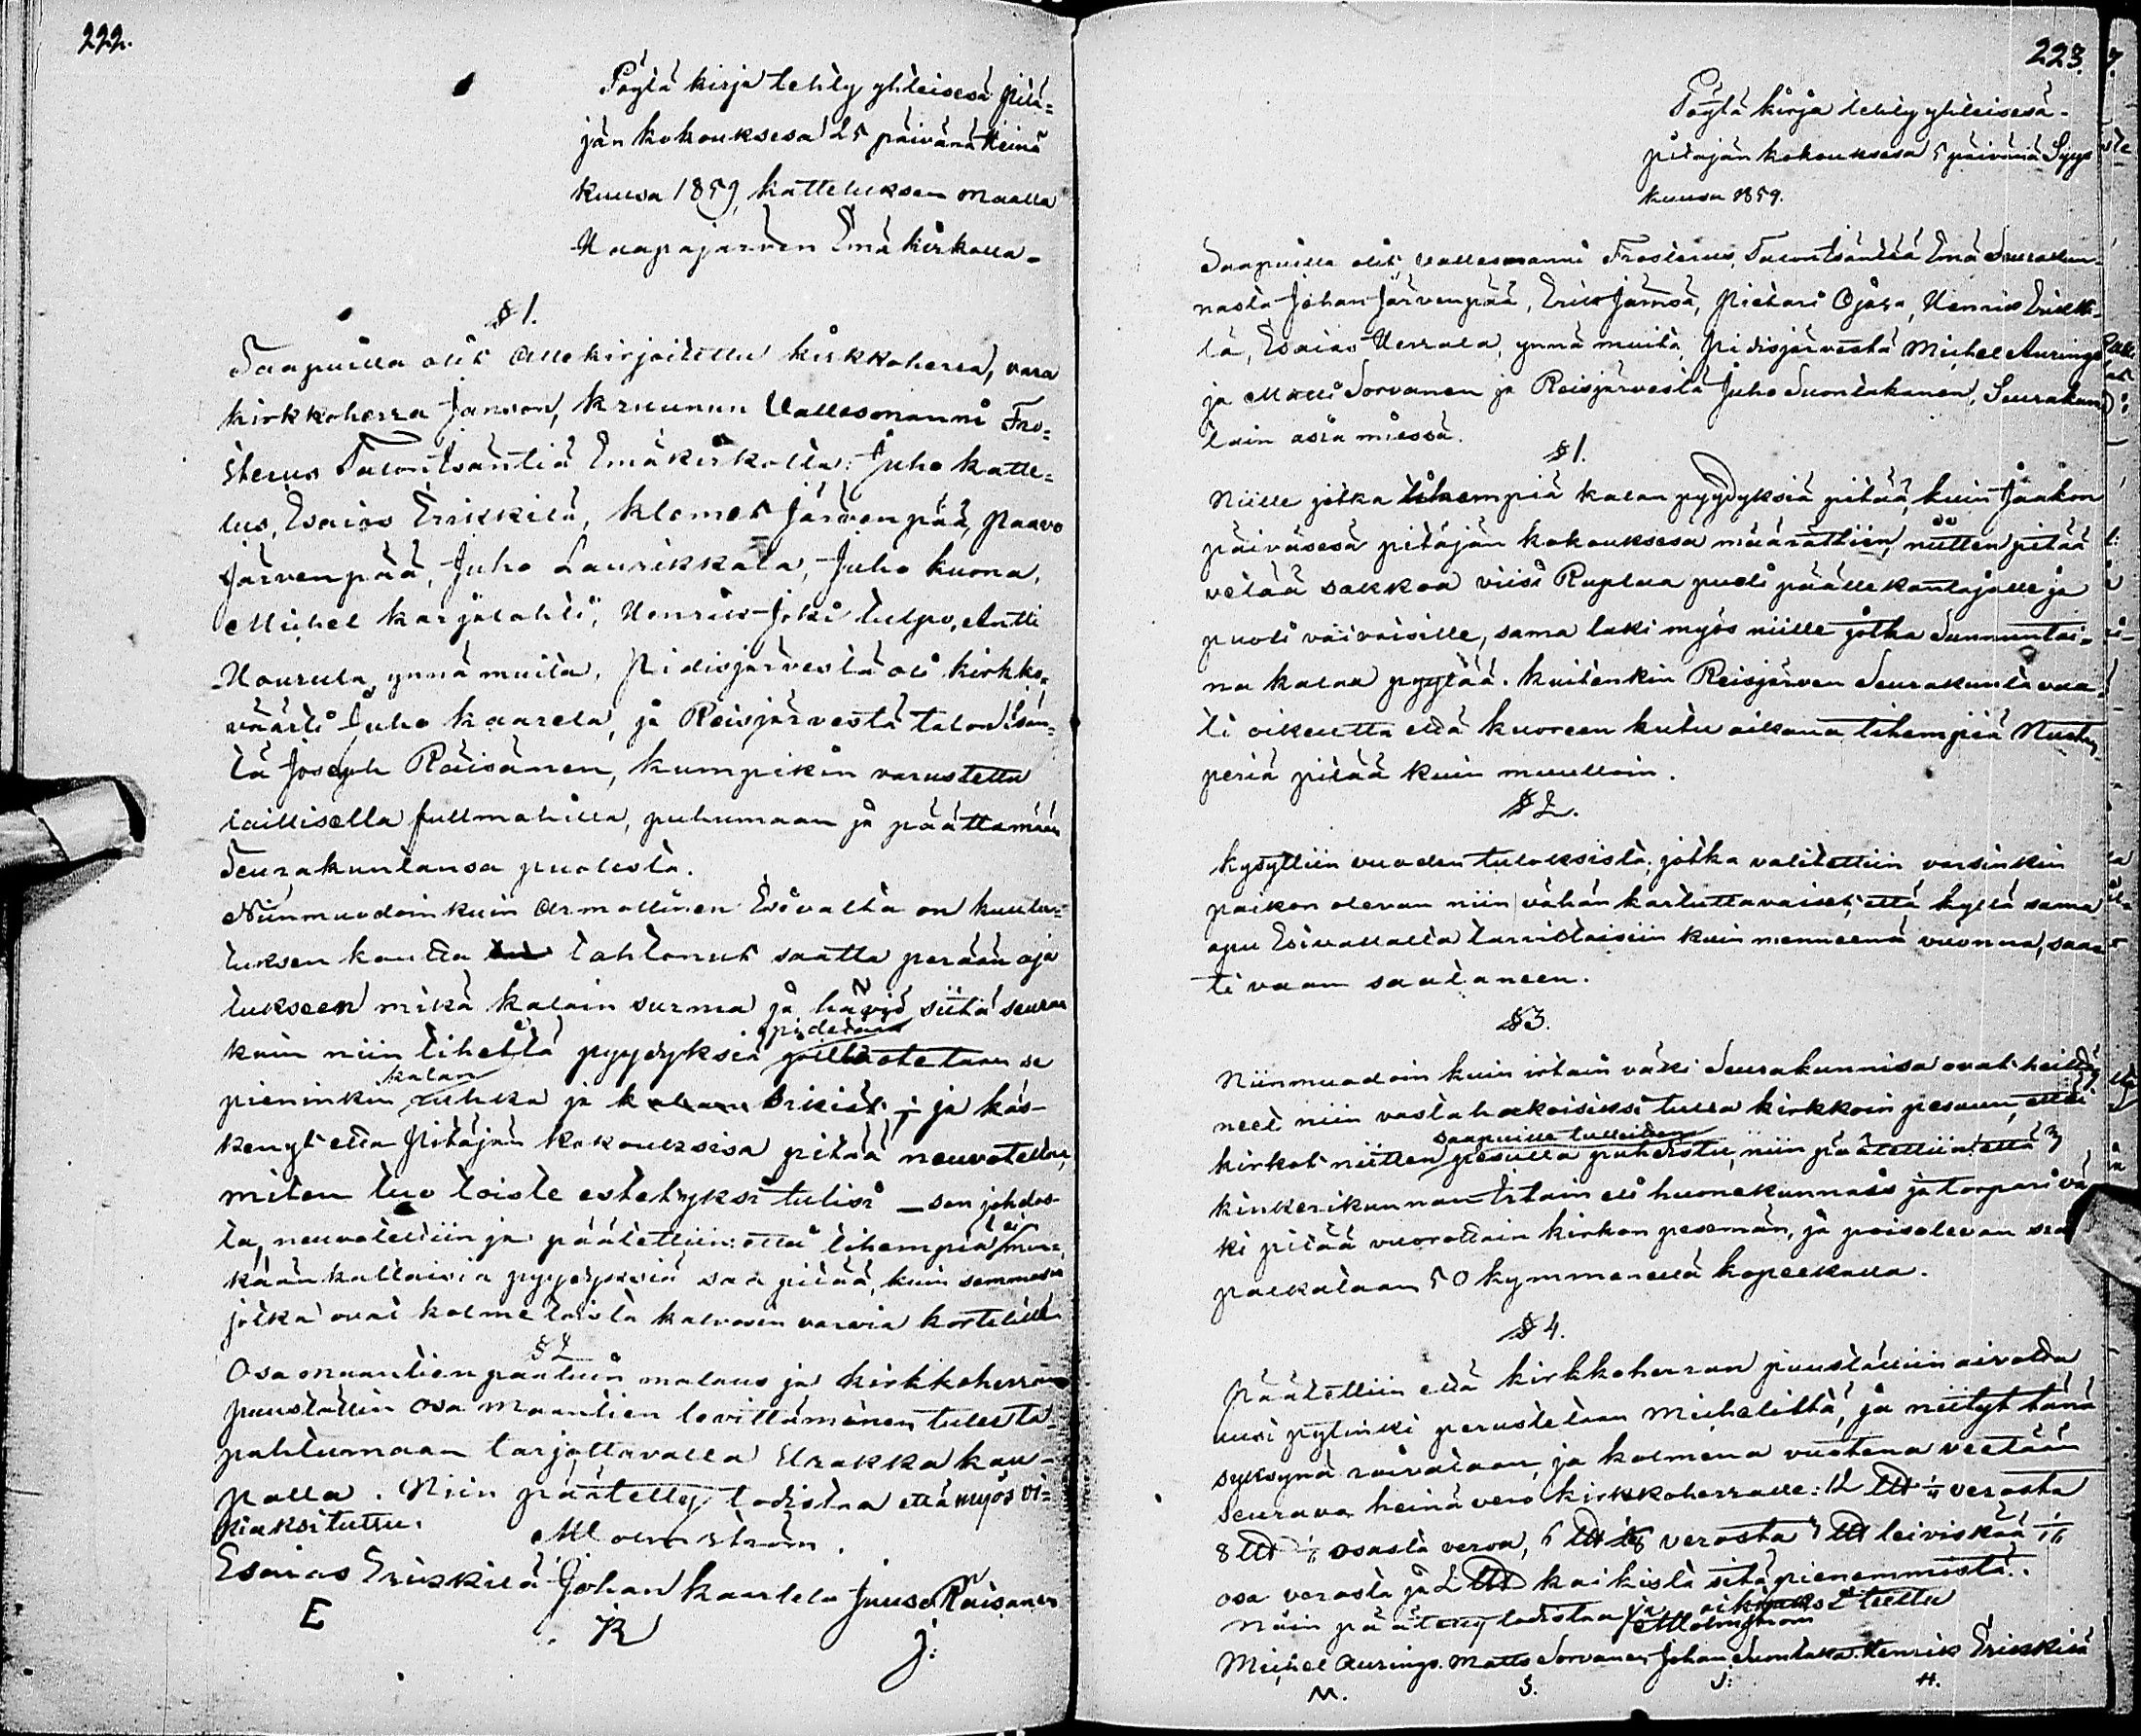 222.
Pöytä kirja tehty yhteisesä Pitä=
jän kokouksesa 25 päivänä Heinä
kuusa 1859, katteluksen maalla
Haapajärven Emä kirkolla -
§ 1.
Saapuilla olit Allekirjoitettu kirkkoherra, vara
kirkkoherra Janson, kruunun Vallesmanni Fro=
sterus Talon Isäntiä Emäkirkolta: Juho katte=
lus, Esaias Erikkilä, klemet Järvenpää, Paavo
Järvenpää, Juho Laurikkala, Juho kuona,
Michel karjalahti, Henrik Joki tulpo, Antti
Haurula, ynnä muita, Pidisjärvestä oli kirkko,
väärti Juho kaarela, ja Reisjärvestä talon Isän=
tä Joseph Räisänen, kumpikin varustettu
laillisella fullmahilla, puhumaan ja päättämään
Seurakuntansa puolesta.
Niinmuodoin kuin Armollinen Esivalta on kuulu=
tuksen kautta tahtonut saatta perään aja
tukseen mikä kalain surma ja häviö siitä seuraa
kuin niin tihellä pyydyksiä pidetään otetaan se
pieninkin kalan ruhka ja ja käs-
kenyt että Pitäjän kokouksisa pitää neuvotella,
miten tuo toiste estetyksi tulisi – sen johdos-
ta, neuvoteltiin ja päätettiin: että tihempiä ei min=
kään kaltaisia pyydyksiä saa pitää, kuin semmosia
jotka ovat kolme toista kalvosin varvia korttelilla
§ 2
Osa maantien paaluin malaus ja kirkkoherran
puustallin osa maantien levittäminen tulee ta=
pahtumaan tarjottavalla Urakka kau-
palla. Niin päätetty todistaa että myös oi=
kiaksi tuttu.
M
Esaias Erikkilä Johan kaarela Juuso Räisänen
E K J:
223.
Pöytä kirja tehty yhteisesä-
pitäjän kokouksesa 5 päivänä Syys
kuusa 1859.
Saapuilla olit vallesmanni Frosterus, Talon Isäntiä Emä Seurakun-
nasta Johan Järvenpää, Erik Jämsä, Pietari Ojala, Henrik Erikki-
lä, Esaias Herrala, ynnä muita, Pidisjärvestä Michel Aurings
ja Matti Sorvanen ja Reisjärvestä Juho Suontakanen, Seurakun
tain asia miessä.
§ 1.
Niille jotka tihempiä kalan pyydyksiä pitää, kuin Jaakon
päiväsesä pitäjän kokouksesa määrättiin, niitten pitää
vetää sakkoa viisi Ruplaa puoli päälle kantajalle ja
puoli vaivaisille, sama laki myös niille jotka Sunnuntai-
na kalaa pyytää. kuitenkin Reisjärven Seurakunta vaa-
ti oikeutta että kuoreen kutu aikana tihempiä Nuota,
periä pitää kuin muulloin.
§ 2.
kysyttiin vuoden tuloksista, jotka valitettiin varsinkin
paikon olevan niin vähän karttuttavaiset, että kyllä sama
apu Esivallalta tarvittaisiin kuin menneenä vuonna, saa-
ti vaan saataneen.
§ 3.
Niinmuodoin kuin irtain väki Seurakunnisa ovat heittäy
neet niin vastahakoisiksi tulla kirkkoin pesuun, ettei
kirkot niitten saapuille tulleitten pesulla puhdistu, niin päätettiin että
kinkerikunnan Irtain eli huonekunnais ja torpari vä
ki pitää vuorottain kirkon pesemän, ja poisolevan
palkataan 50 kymmenellä kopeekalla.
§ 4.
Päätettiin että kirkkoherran puustalliin aivotta
uusi pytinki perustetaan Michelittä, ja niityt tänä
syksynä raivataan, ja kolmena vuotena veetään
seurava heinä vero kirkkoherralle: 12 L℔ 1/4 verosta
8 L℔ 1/6 osasta veroa, 6 L℔ 1/8 verosta L℔ leiviskää 1/16
osa verosta ja 2 L℔ kaikista sitä pienemmistä.
Näin päätetty todistaa ja oikiaksi tuttu
Michel Aurings. Matts Sorvanen Johan Suontaka. Henrik Erikkilä
M. S. J: H.